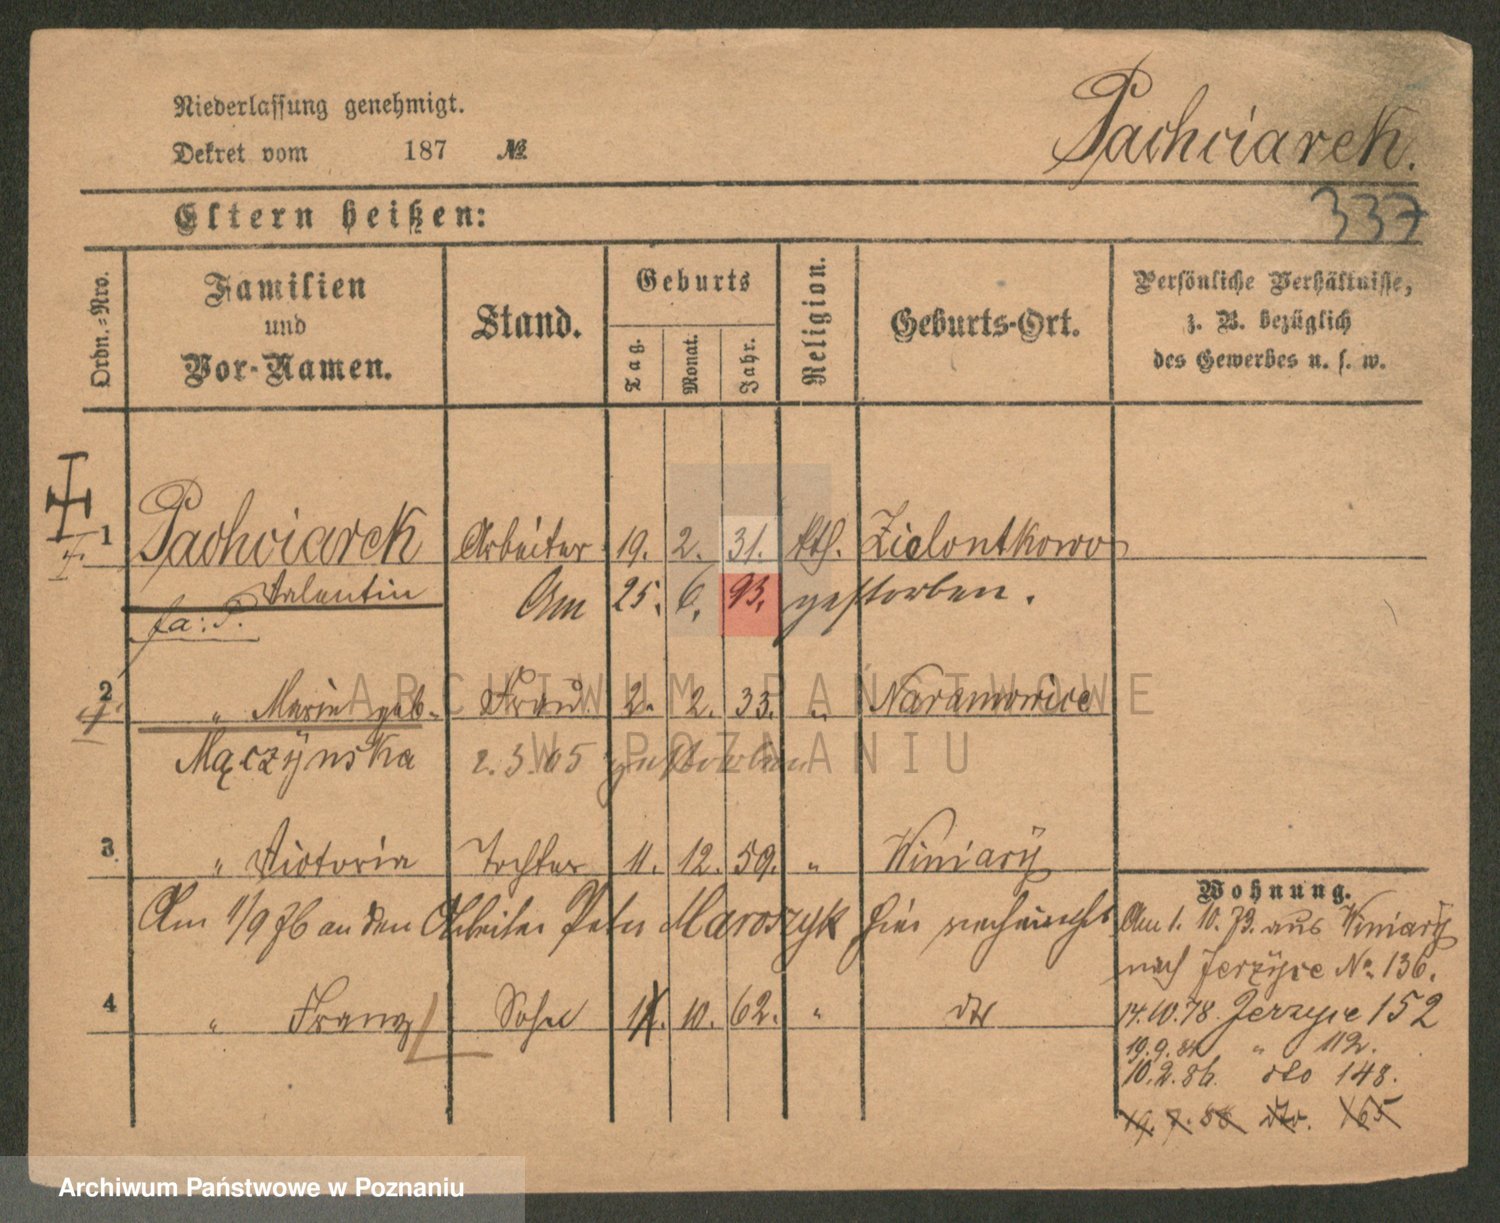 Niederlassung genehmigt.
Dekret vom 187 №
Pachciarek.
Eltern heißen:
337
Ordn.-Nro.
Familien
und
Vor-Namen.
Stand.
Geburts
Tag.
Monat.
Jahr.
Religion.
Geburts-Ort.
Persönliche Verhältnisse,
z. B. bezüglich
des Gewerbes u. s. w.
1 Pachciarek Arbeiter 19. 2. 31. kth. Zielontkowo
Valentin Am 25. 6. 93. gestorben.
fa: P.
2 " Marie geb. Frau 2. 2. 33. " Naramowice
Mączÿnska 2. 3. 05 gestorben
3 " Victoria Tochter 11. 12. 59. " Winiarÿ
Am 1/9 76 an den Arbeiter Peter Maroszyk hier
4 " Franz Sohn 10. 62. " dto
Wohnung.
Am 1. 10. 73. aus Winiarÿ
nach Jerzÿce No 136.
14.10.78. Jerzyce 152
19.9.84 " 112.
10.2.86. dto 148.
19. 7. 88 dto. 165
ARCHIWUM PAŃSTWOWE
W POZNANIU
Archiwum Państwowe w Poznaniu